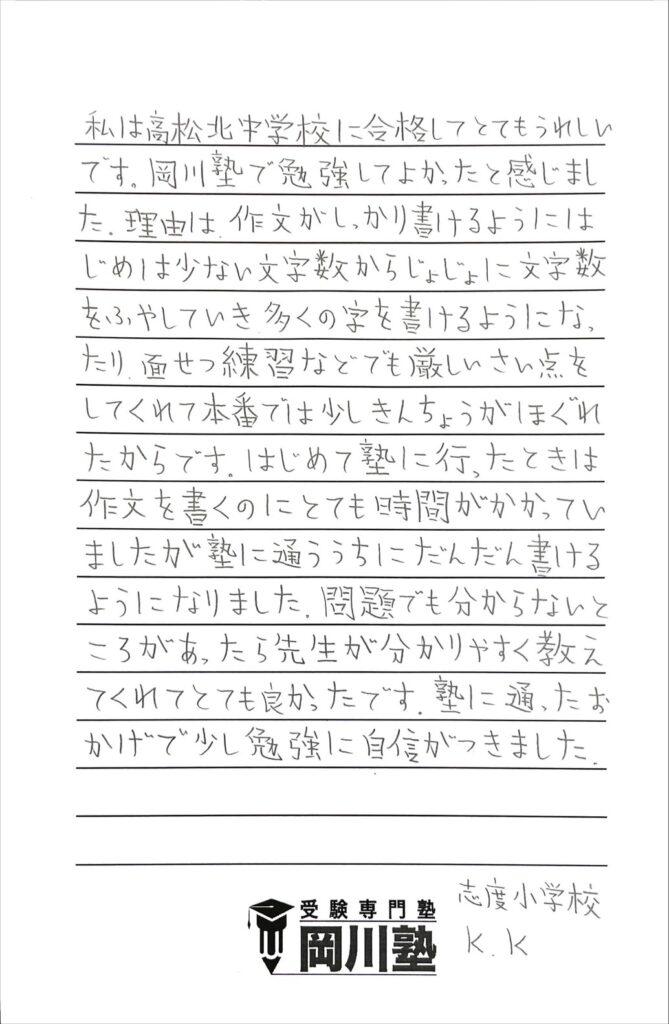 私は高松北中学校に合格してとてもうれしい
です。岡川塾で勉強してよかったと感じまし
た。理由は、作文がしっかり書けるようには
じめは少ない文字数からじょじょに文字数
をふやしていき多くの字を書けるようになっ
たり、面せつ練習などでも厳しいさい点を
してくれて本番では少しきんちょうがほぐれ
たからです。はじめて塾に行ったときは
作文を書くのにとても時間がかかってい
ましたが塾に通ううちにだんだん書ける
ようになりました。問題でも分からないと
ころがあったら先生が分かりやすく教え
てくれてとても良かったです。塾に通ったお
かげで少し勉強に自信がつきました。
志度小学校
K.K
受験専門塾
岡川塾